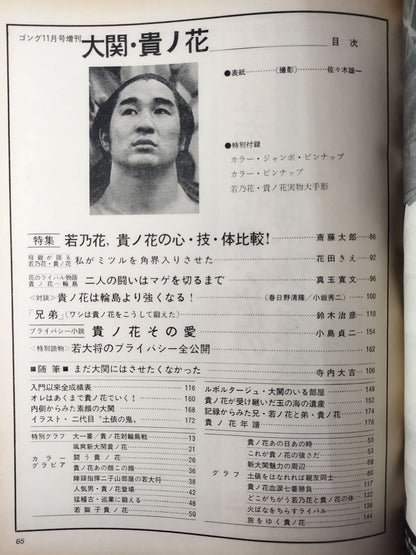 ゴング11月号増刊
大関・貴ノ花
目次
●表紙…………(撮影)………佐々木雄一
●特別付録
カラー・ジャンボ・ピンナップ
カラー・ピンナップ
若乃花・貴ノ花実物大手形
特集 若乃花,貴ノ花の心・技・体比較!……斎藤太郎…86
母親が語る若乃花・貴ノ花 私がミツルを角界入りさせた……花田きえ…92
花のライバル物語 貴ノ花―輪島 二人の闘いはマゲを切るまで……真玉寛文…96
<対談>貴ノ花は輪島より強くなる!……(春日野清隆/小坂秀二)…100
「兄弟」(ワシは貴ノ花をこうして鍛えた)……鈴木治彦…110
プライバシー小説 貴ノ花その愛……小島貞二…154
<特別読物>若大将のプライバシー全公開……162
■随筆■まだ大関にはさせたくなかった……寺内大吉…106
入門以来全成績表……116
オレはあくまで貴ノ花でいく!……160
内側からみた素顔の大関……168
イラスト・二代目“土俵の鬼”……172
ルポルタージュ・大関のいる部屋……149
貴ノ花が受け継いだ玉の海の遺産……152
記録からみた兄・若ノ花と弟・貴ノ花……174
貴ノ花年譜……176
特別グラフ 大一番/貴ノ花対輪島戦……13
カラーグラビア
颯爽新大関貴ノ花……21
闘う貴ノ花……26
貴ノ花あの顔この顔……36
陣頭指揮二子山部屋の若大将……38
人気男・貴ノ花登場……42
猛稽古・巡業に鍛える……48
若獅子貴ノ花……50
グラフ
貴ノ花あの日あの時……53
これが貴ノ花の強さだ……55
新大関魅力の周辺……69
土俵をはなれれば親友同士……80
貴ノ花血涙七番勝負……117
どこがちがう若乃花と貴ノ花の体……132
火ばなをちらすライバル……136
旅をゆく貴ノ花……144
85